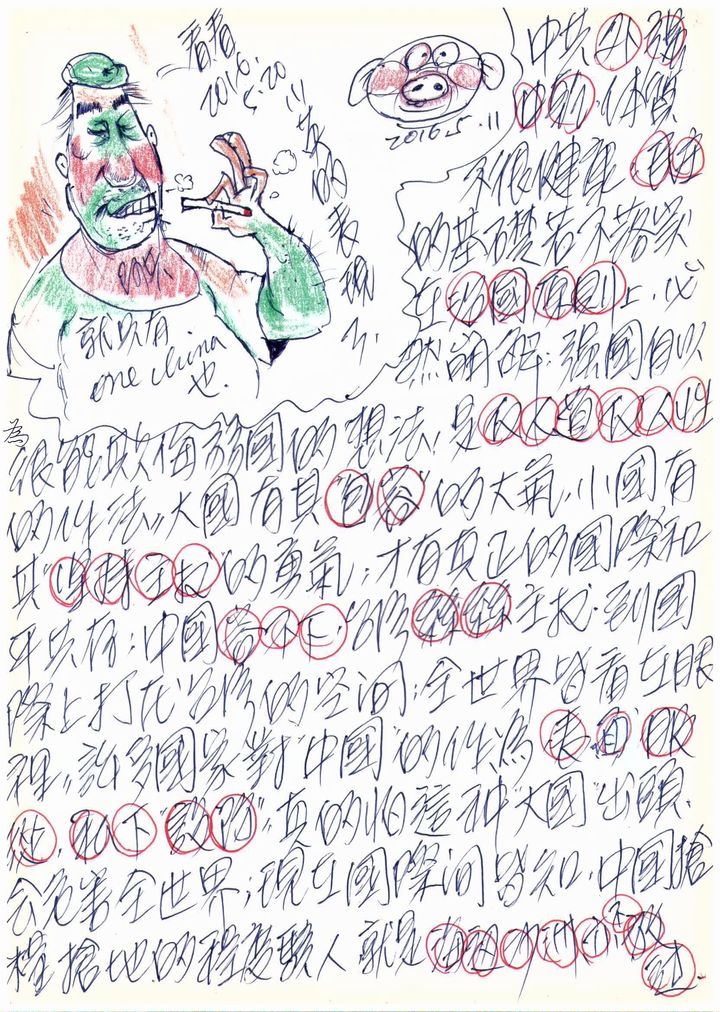 看看
2016.
5.20
英的表現了.
就只有
one china
也.
2016.5.11
中共外強
中乾,体質
不很健康,
的基礎若不落实
在治國原則上,必
然崩解;強國自以
為很能欺侮弱國的想法,是反人道反人性
的作法,大國有其"包容"的大氣,小國有
其"堅持主权"的勇氣,才有真正的國際和
平共存;中國容不下台湾 主权,到國
際上打 台湾的空间;全世界皆看在眼
裡,許多國家對"中國"的作為表面服
從,私下"設防",真的怕這种"大國"出頭,
会危害全世界;現在國際间皆知,中國搶
權搶地的程度驚人就是 小 不放
过.